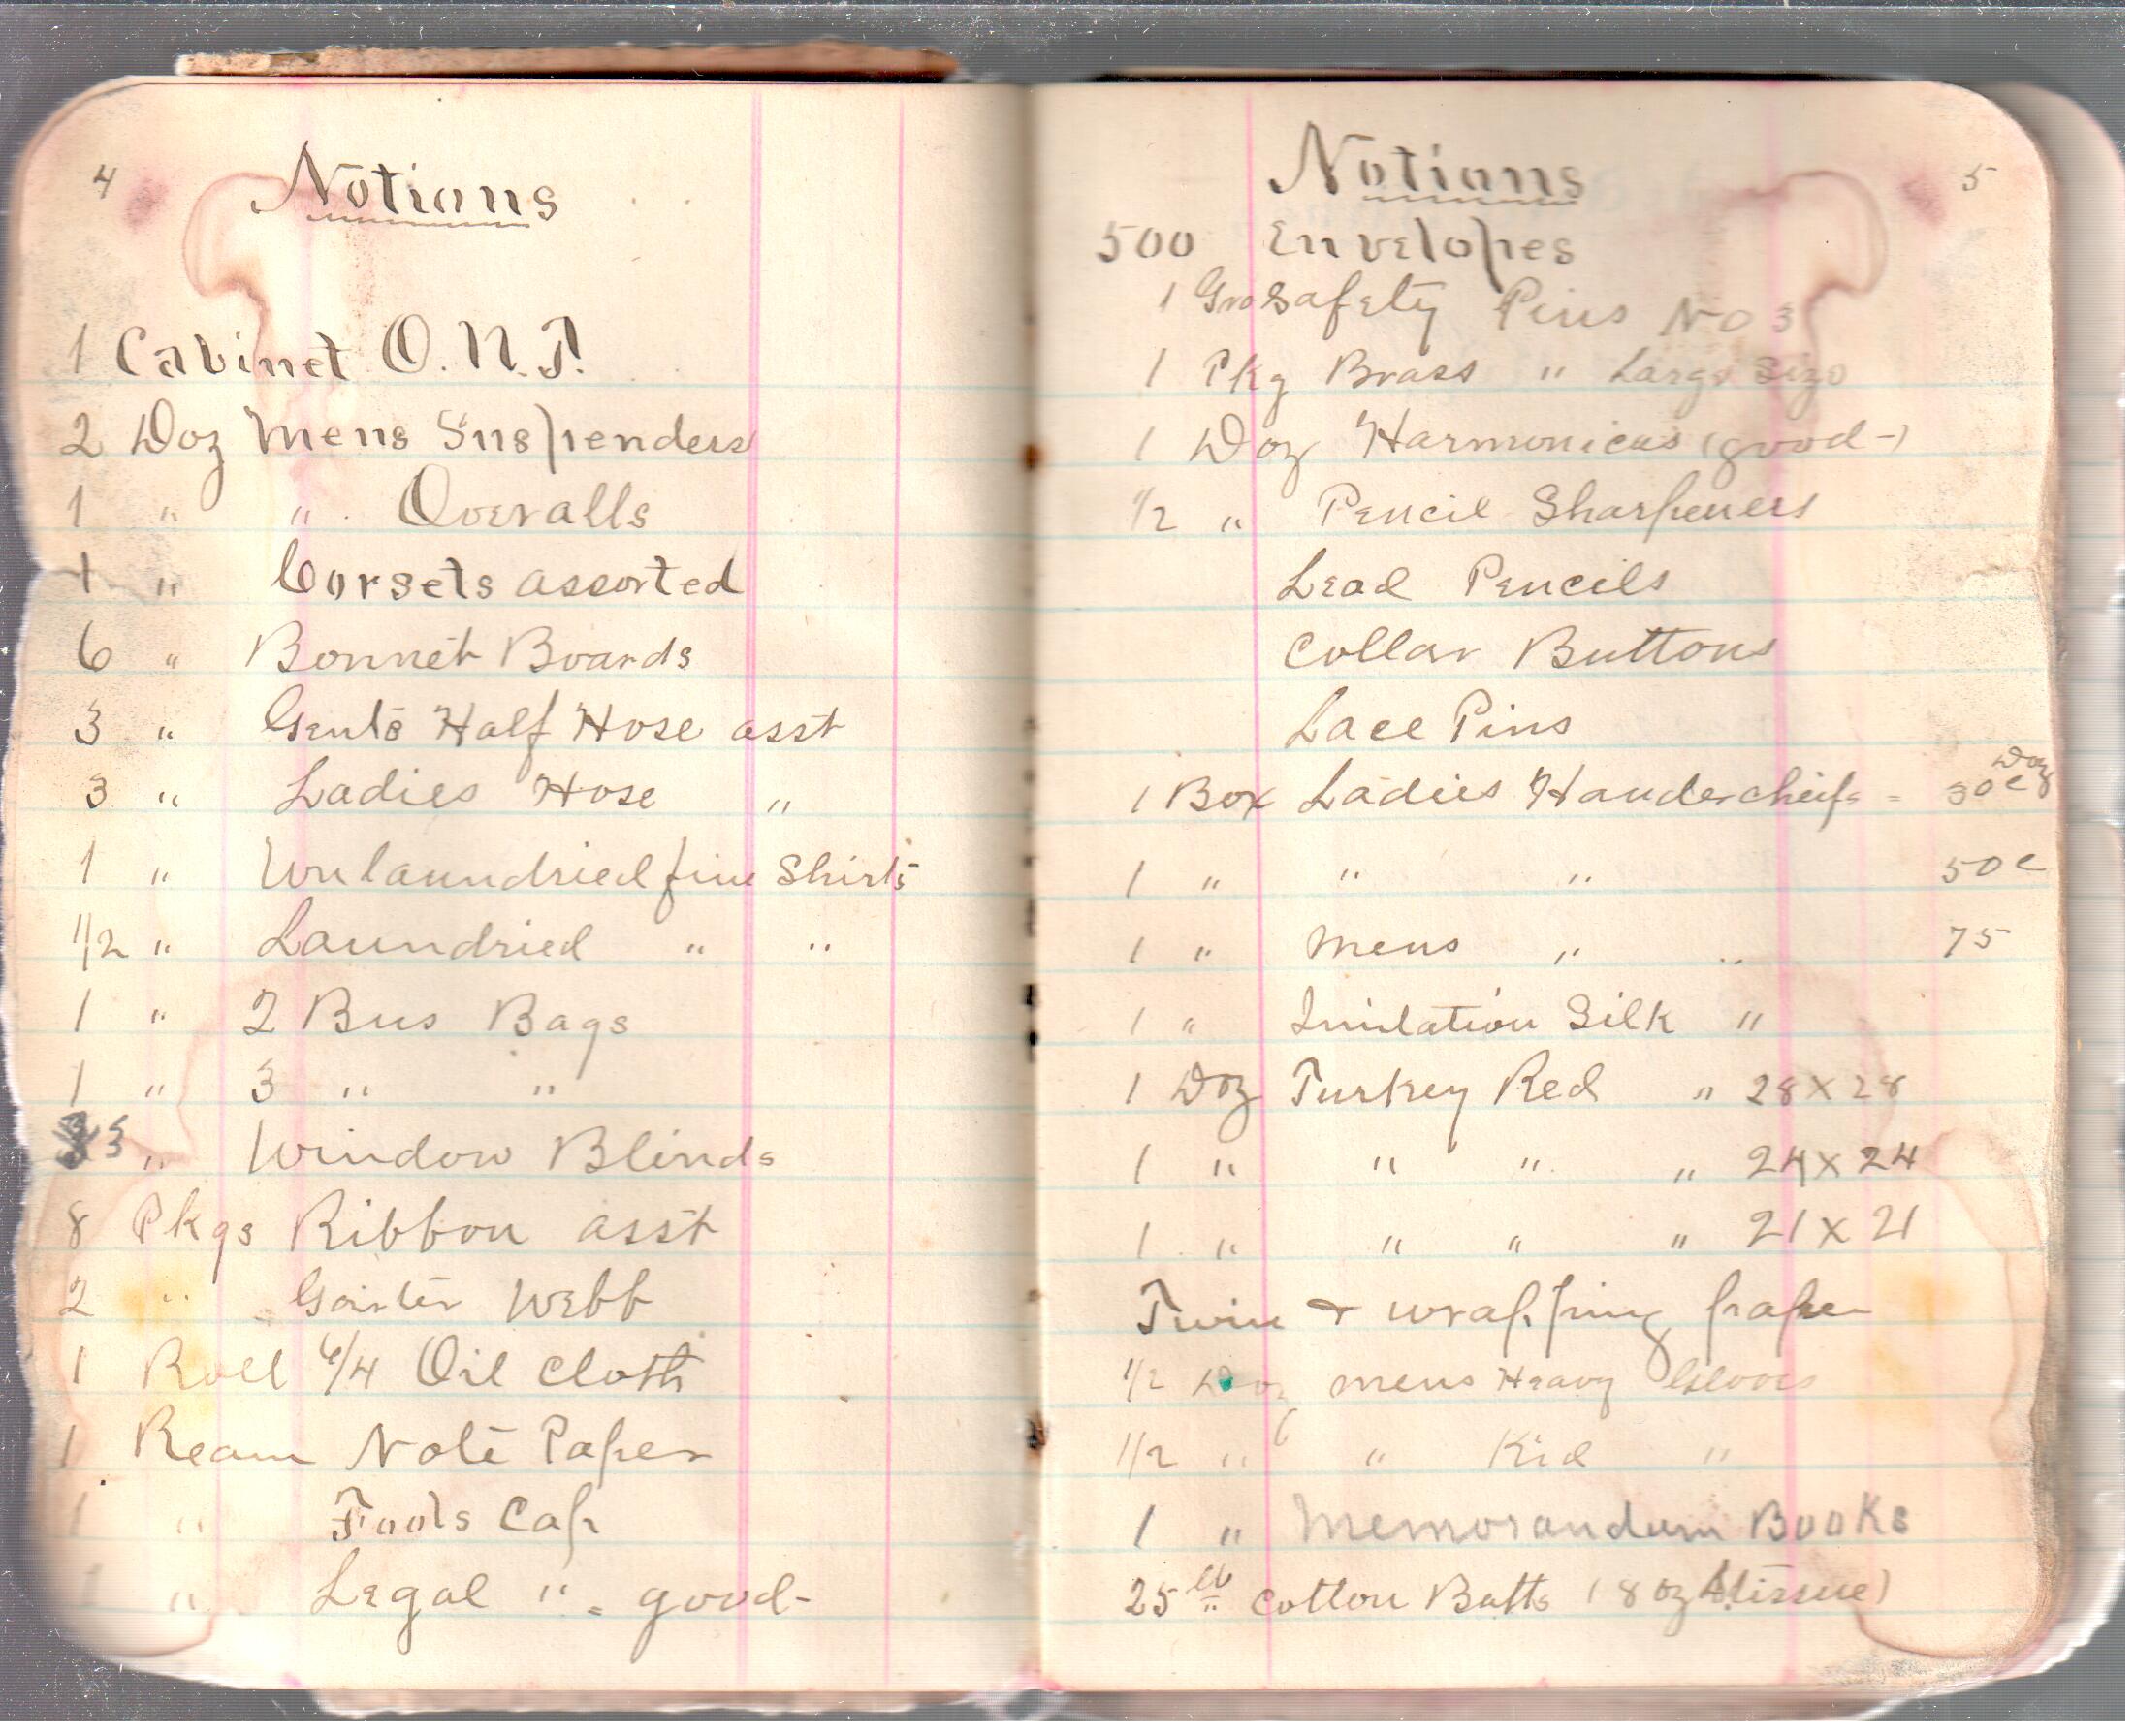 4
Notions
1 Cabinet O.N.T.
2 Doz Mens Suspenders
1 " " Overalls
1 " Corsets assorted
6 " Bonnet Boards
3 " Gents Half Hose asst
3 " Ladies Hose "
1 " Unlaundried fine Shirts
1/2 " Laundried " "
1 " 2 Bus Bags
1 " 3 " "
3 " Window Blinds
8 Pkgs Ribbon asst
2 " Garter Webb
1 Roll 6/4 Oil Cloth
1 Ream Note Paper
1 " Fools Cap
1 " Legal " = good-
5
Notions
500 Envelopes
1 Gro Safety Pins No 3
1 Pkg Brass " Large Size
1 Doz Harmonicas (good-)
1/2 " Pencil Sharpeners
Lead Pencils
Collar Buttons
Lace Pins
1 Box Ladies Handerchiefs = 30c Doz
1 " " " 50c
1 " Mens " " 75
1 " Imitation Silk "
1 Doz Turkey Red " 28 x 28
1 " " " " 24 x 24
1 " " " " 21 x 21
Twin & wrapping paper
1/2 Doz mens Heavy Gloves
1/2 " " Kid "
1 " Memorandum Books
25 lb Cotton Batts (8 oz tissue)